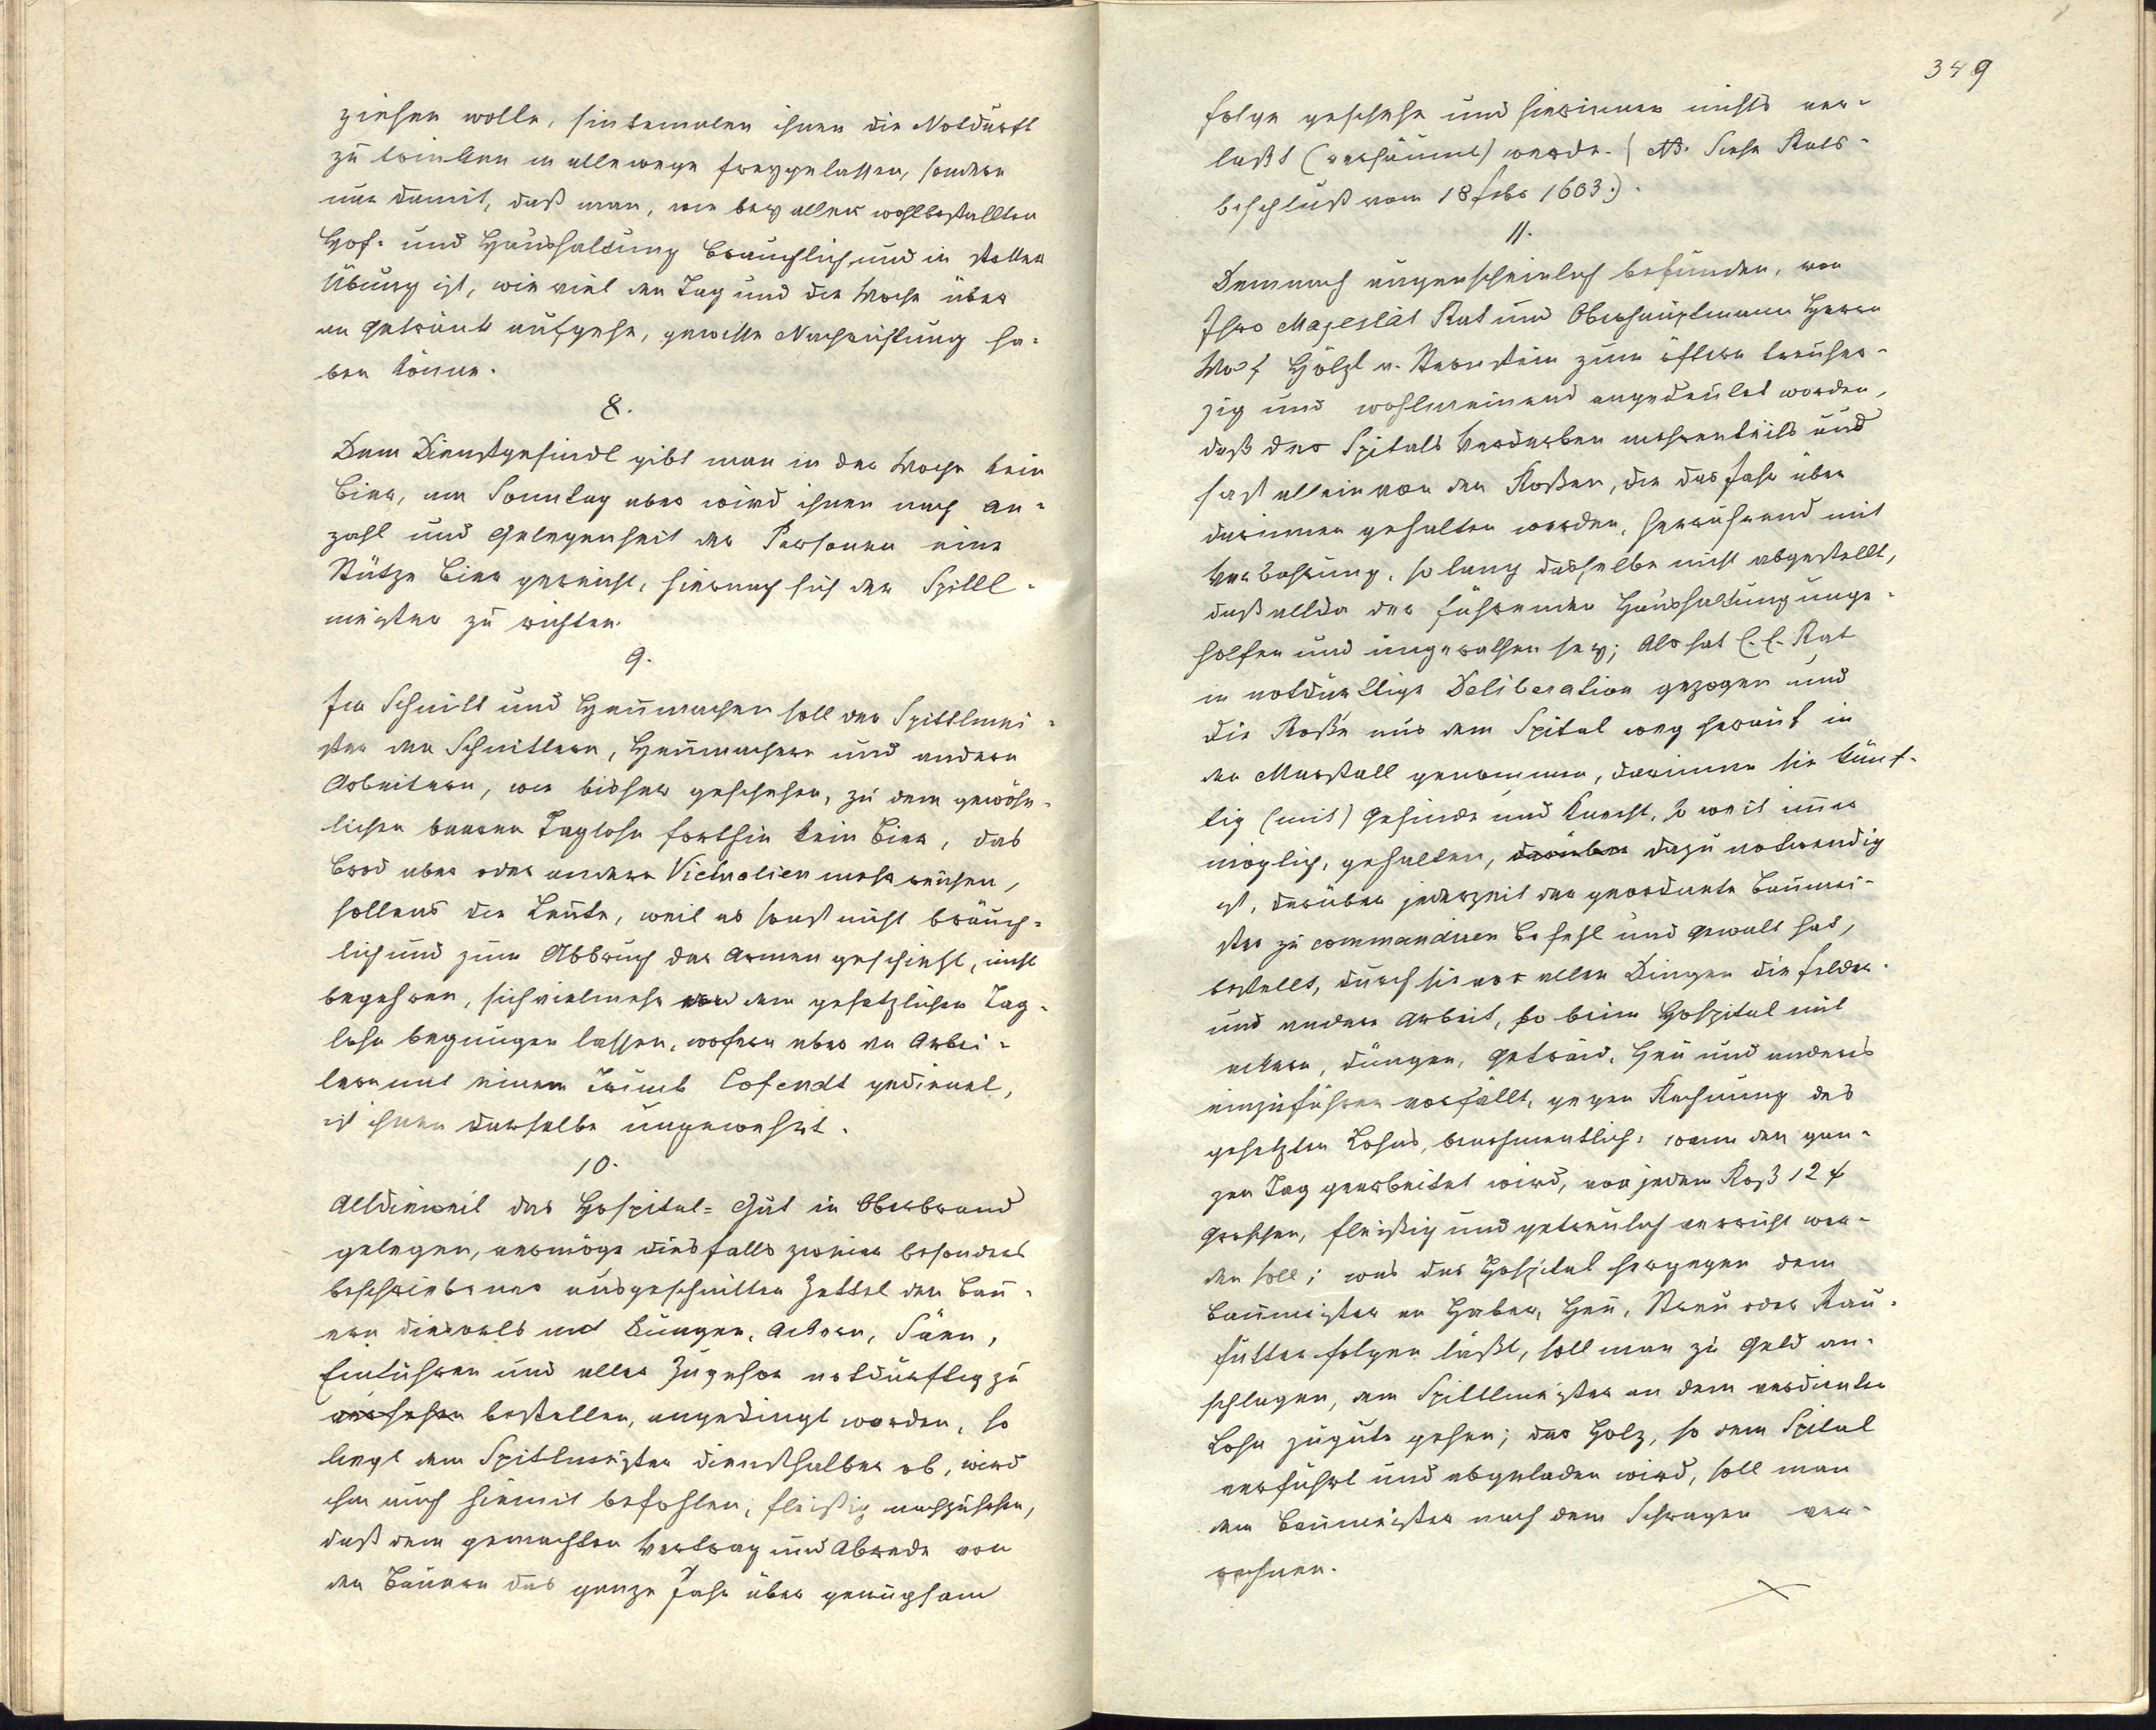 ziehen wolle, sintemalen ihnen die Notdurft
zu trinken in allewege freygelassen, sondern
nur damit, daß man, wie bey aller wohlbestallten
Hof- und Haushaltung bräuchlich und in steter
Übung ist, wie viel den Tag und die Woche über
an Getränk aufgehe, gewisse Nachrichtung ha-
ben könne.
8.
Dem Dienstgesindl gibt man in der Woche kein
Bier, am Sonntag aber wird ihnen nach An-
zahl und Gelegenheit der Personen eine
Stütze Bier gereicht, hiernach sich der Spittl-
meister zu richten.
9.
Im Schnitt und Heumachen soll der Spittlmei-
ster den Schnittern, Heumachern und andern
Arbeitern, wie bisher geschehen, zu dem gewöhn-
lichen baaren Taglohn forthin kein Bier, das
Brod aber oder andere Victualien mehr reichen,
sollens die Leute, weil es sonst nicht bräuch-
lich und zum Abbruch der Armen geschieht, nicht
begehren, sich vielmehr von dem gesetzlichen Tag-
lohn begnügen lassen, wofern aber den Arbei-
tern mit einem Trunk Cofendt gedienet,
ist ihnen derselbe ungewehrt.
10.
Alldieweil das Hospital-Gut in Oberbrand
gelegen, vermöge diesfalls zweier besonders
beschriebener ausgeschnitten Zettel den Bau-
ern diesorts mit Düngen, Ackern, Säen,
Einführen und aller Zugehör notdürftig zu
versehen bestellen, angedingt worden, so
liegt dem Spittlmeister diensthalber ob, wird
ihm auch hiemit befohlen, fleißig nachzusehen,
daß dem gemachten Vertrag und Abrede von
den Bauern das ganze Jahr über genugsam
349
Folge geschehe und hierinnen nichts ver-
laßt (versäumt) werde. (NB. Siehe Rats-
beschluß vom 18 Febr 1603.)
11.
Demnach augenscheinlich befunden, von
Ihro Majestät Rat und Oberhauptmann Herrn
Wolf Hölzl v. Sternstein zum öftern treuher-
zig und wohlmeinend angedeutet worden,
daß des Spitals Verderben mehrenteils und
fast allein von den Roßen, die das Jahr über
darinnen gehalten werden, herrührend mit
Verwahrung, so lang dasselbe nicht abgestellt,
daß allda der führenden Haushaltung unge-
holfen und ungerathen sey; Als hat E. E. Rat
in notdürftige Deliberation gezogen und
die Roße aus dem Spital weg herauf in
den Marstall genommen, darinnen sie künf-
tig (mit) Gesinde und Knecht, so weit immer
möglich, gehalten, darüber dazu notwendig
ist, darüber jederzeit der geordnete Baumei-
ster zu commandiren Befehl und Gewalt hat,
bestellt, durch sie vor allen Dingen die Felder
und andere Arbeit, so beim Hospital mit
ackern, düngen, Getraid, Heu und anders
einzuführen vorfällt, gegen Rechnung des
gesetzten Lohns, benehmentlich, wenn den gan-
zen Tag gearbeitet wird, von jedem Roß 12
Groschen, fleißig und getreulich verricht wer-
den soll; was das Hospital hergegen dem
Baumeister an Haber, Heu, Streu oder Rau-
futter folgen läßt, soll man zu Geld an-
schlagen, dem Spittlmeister an dem verdienten
Lohn zugute gehen; das Holz, so dem Spital
verführt und abgeladen wird, soll man
dem Baumeister nach dem Schragen ver-
rechnen.